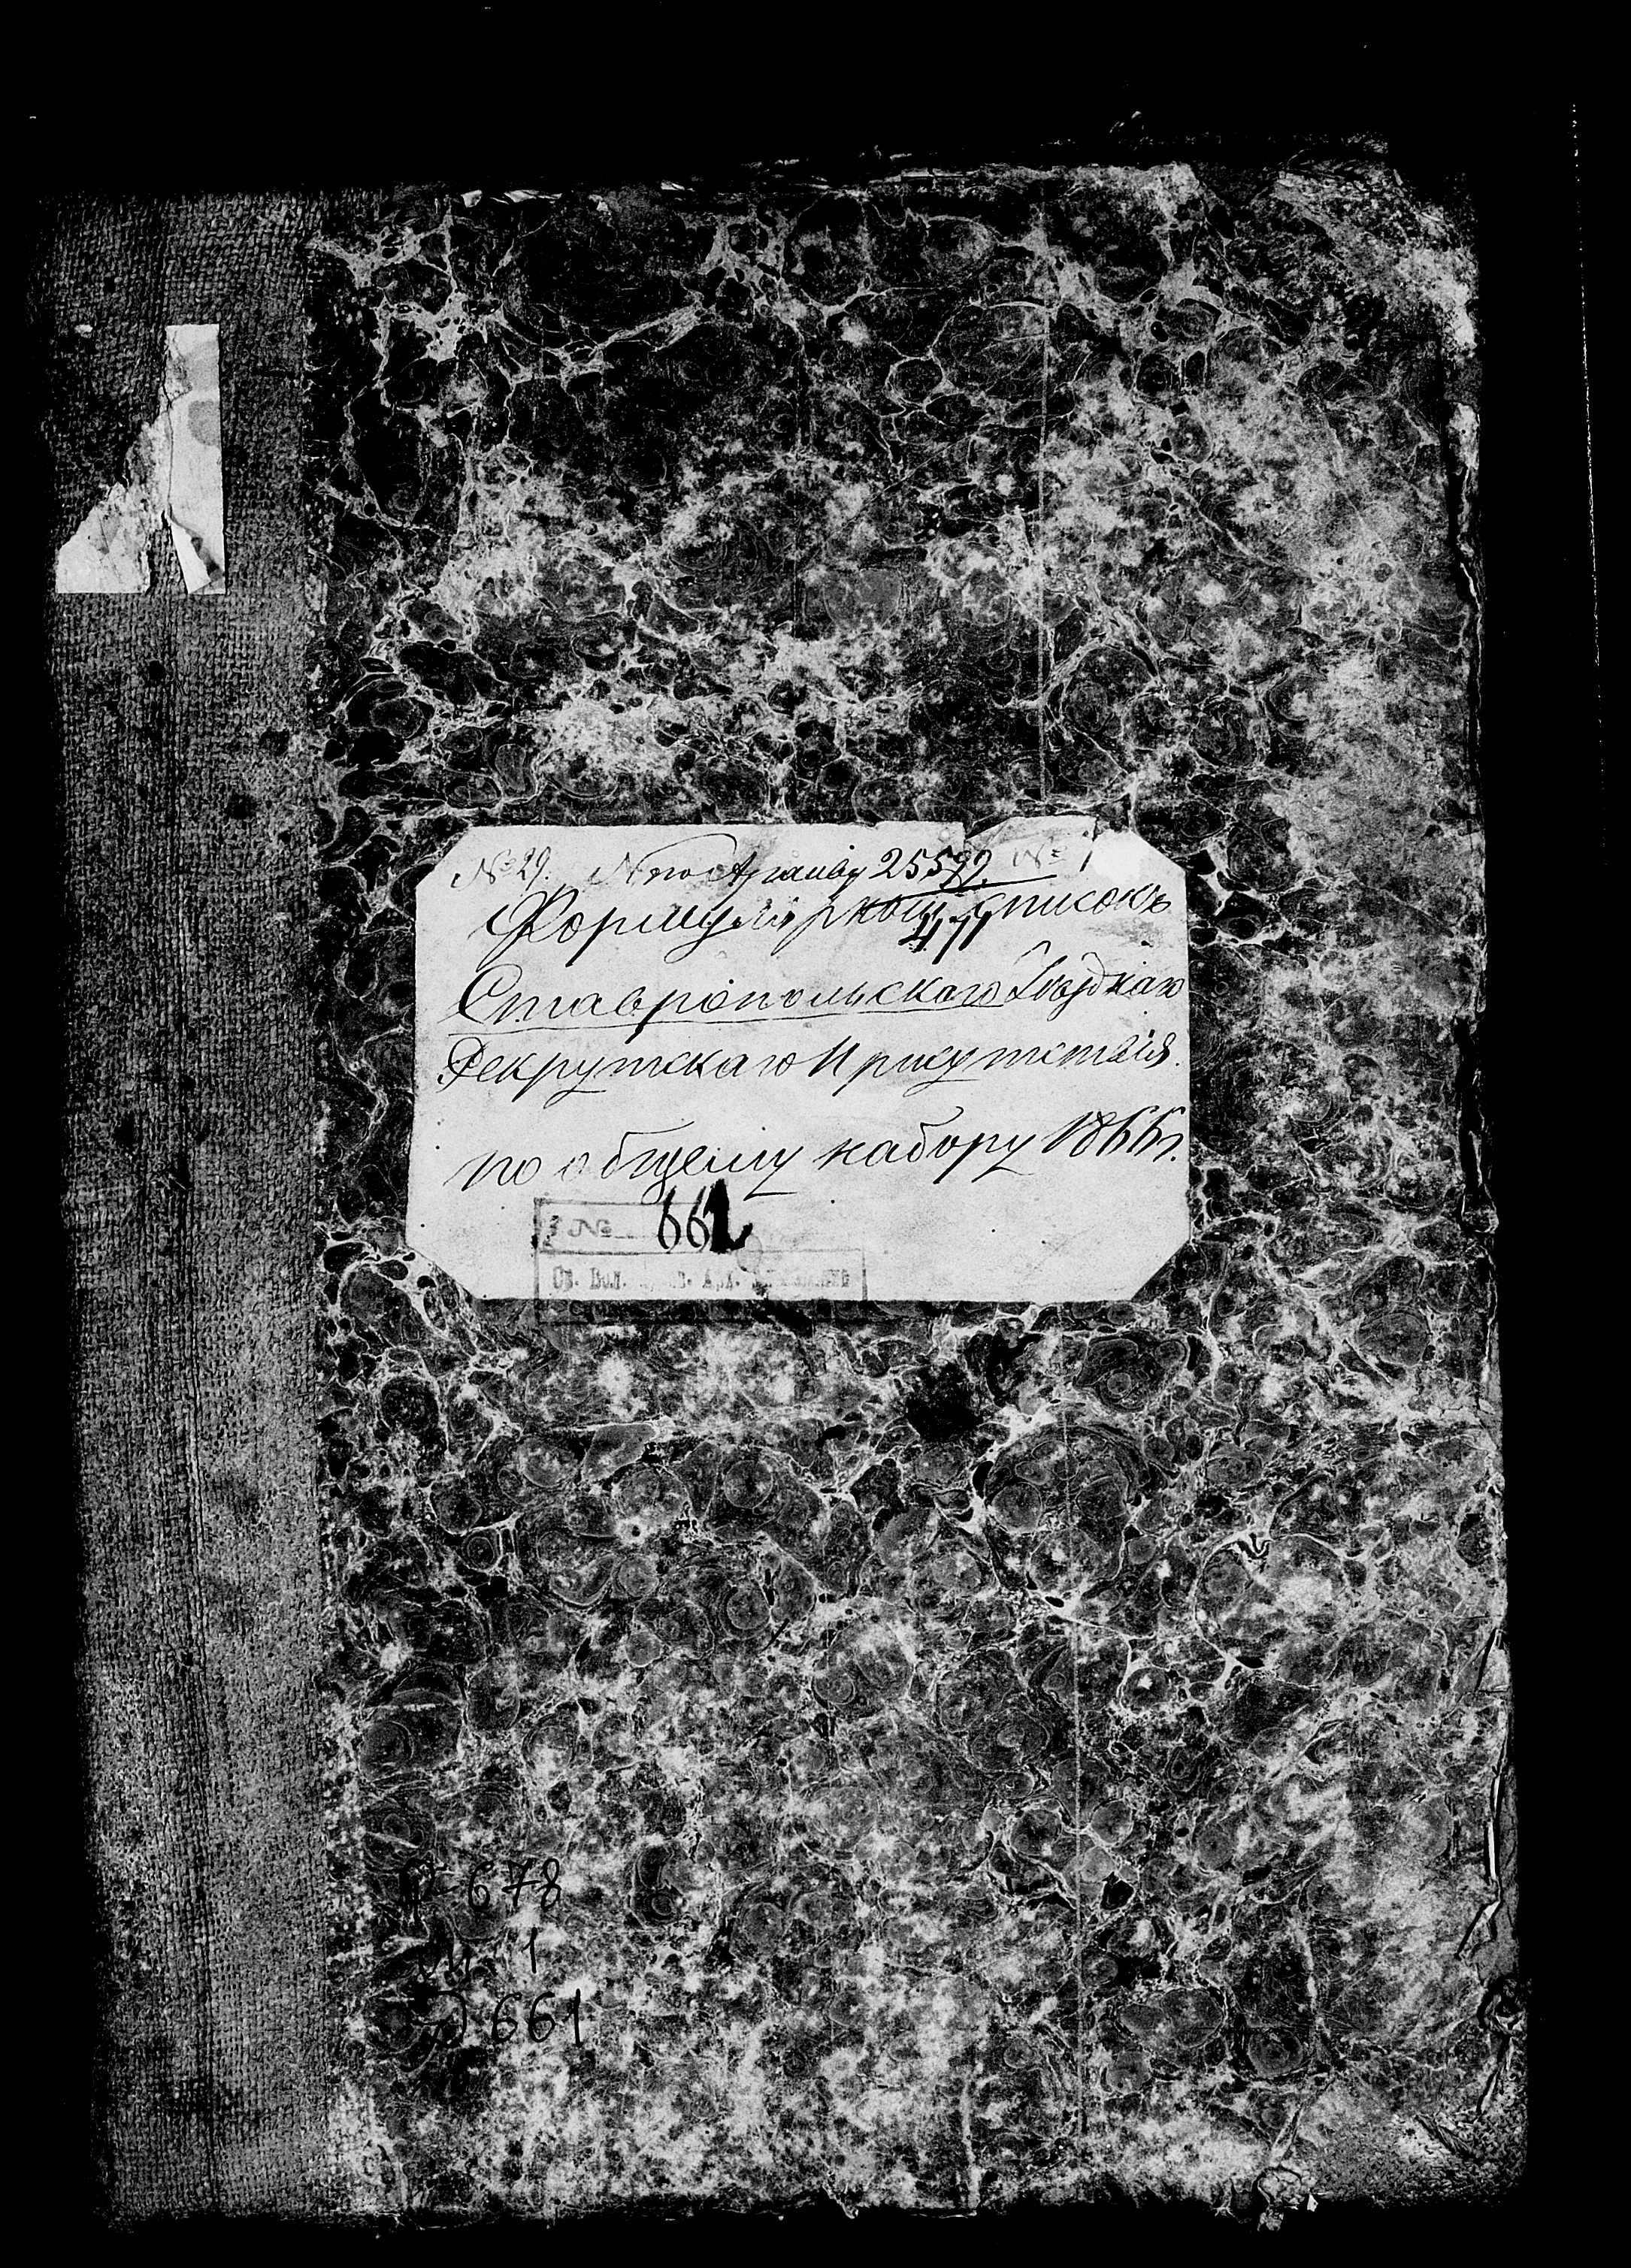 № 29. № по Архиву 25592. № 1
Формулярный списокъ
477
Ставропольскаго Уѣзднаго
Рекрутскаго Присутствія.
по общему набору 1866 г.
№ 661
Ф 678
оп. 1
Д 661